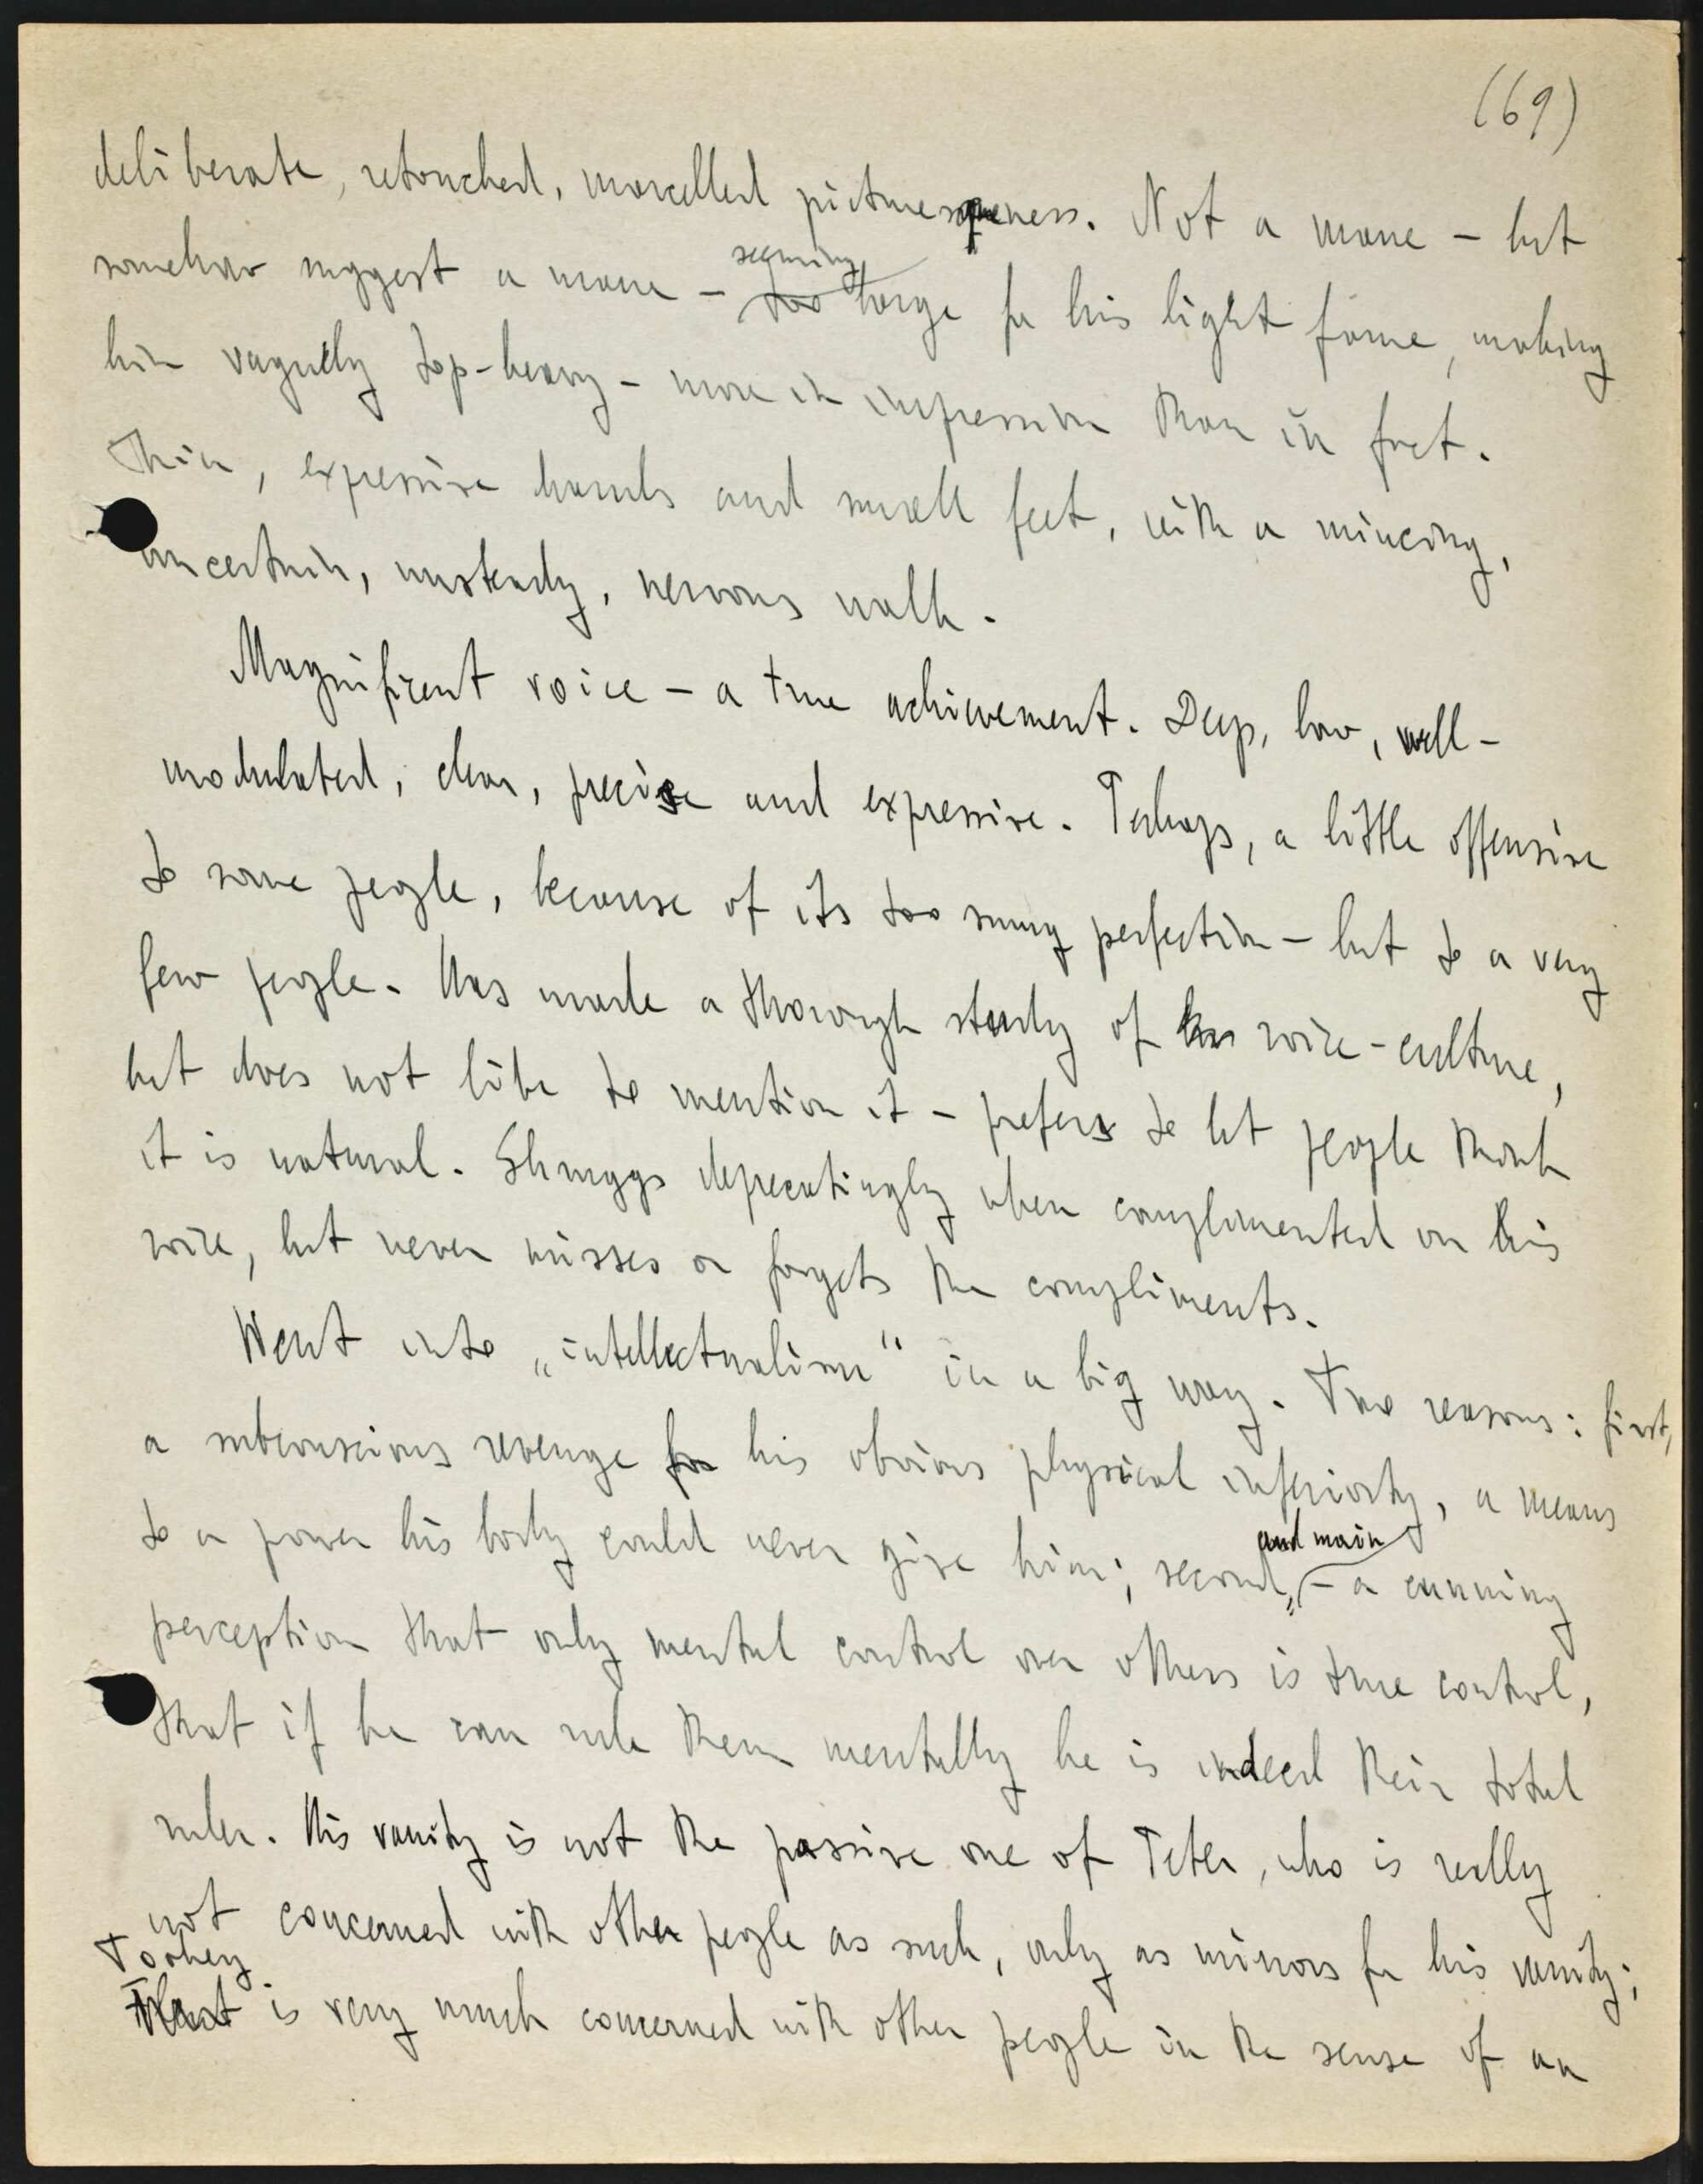 (69)
deliberate, retouched, marcelled picturesqueness. Not a mane – but
somehow suggest a mane – seeming
too large for his light frame, making
him vaguely top-heavy – more in impression than in fact.
Thin, expressive hands and small feet, with a mincing,
uncertain, unsteady, nervous walk.
Magnificent voice – a true achievement. Deep, low, well-
modulated, clear, precise and expressive. Perhaps, a little offensive
to some people, because of its too smug perfection – but to a very
few people. Has made a thorough study of his voice-culture,
but does not like to mention it – prefers to let people think
it is natural. Shruggs deprecatingly when complimented on his
voice, but never misses or forgets the compliments.
Went into „intellectualism" in a big way. Two reasons: first,
a subconscious revenge for his obvious physical inferiority, a means
to a power his body could never give him; second, and main – a cunning
perception that only mental control over others is true control,
that if he can rule them mentally he is indeed their total
ruler. His vanity is not the passive one of Peter, who is really
not concerned with other people as such, only as mirrors for his vanity;
Toohey
is very much concerned with other people in the sense of an